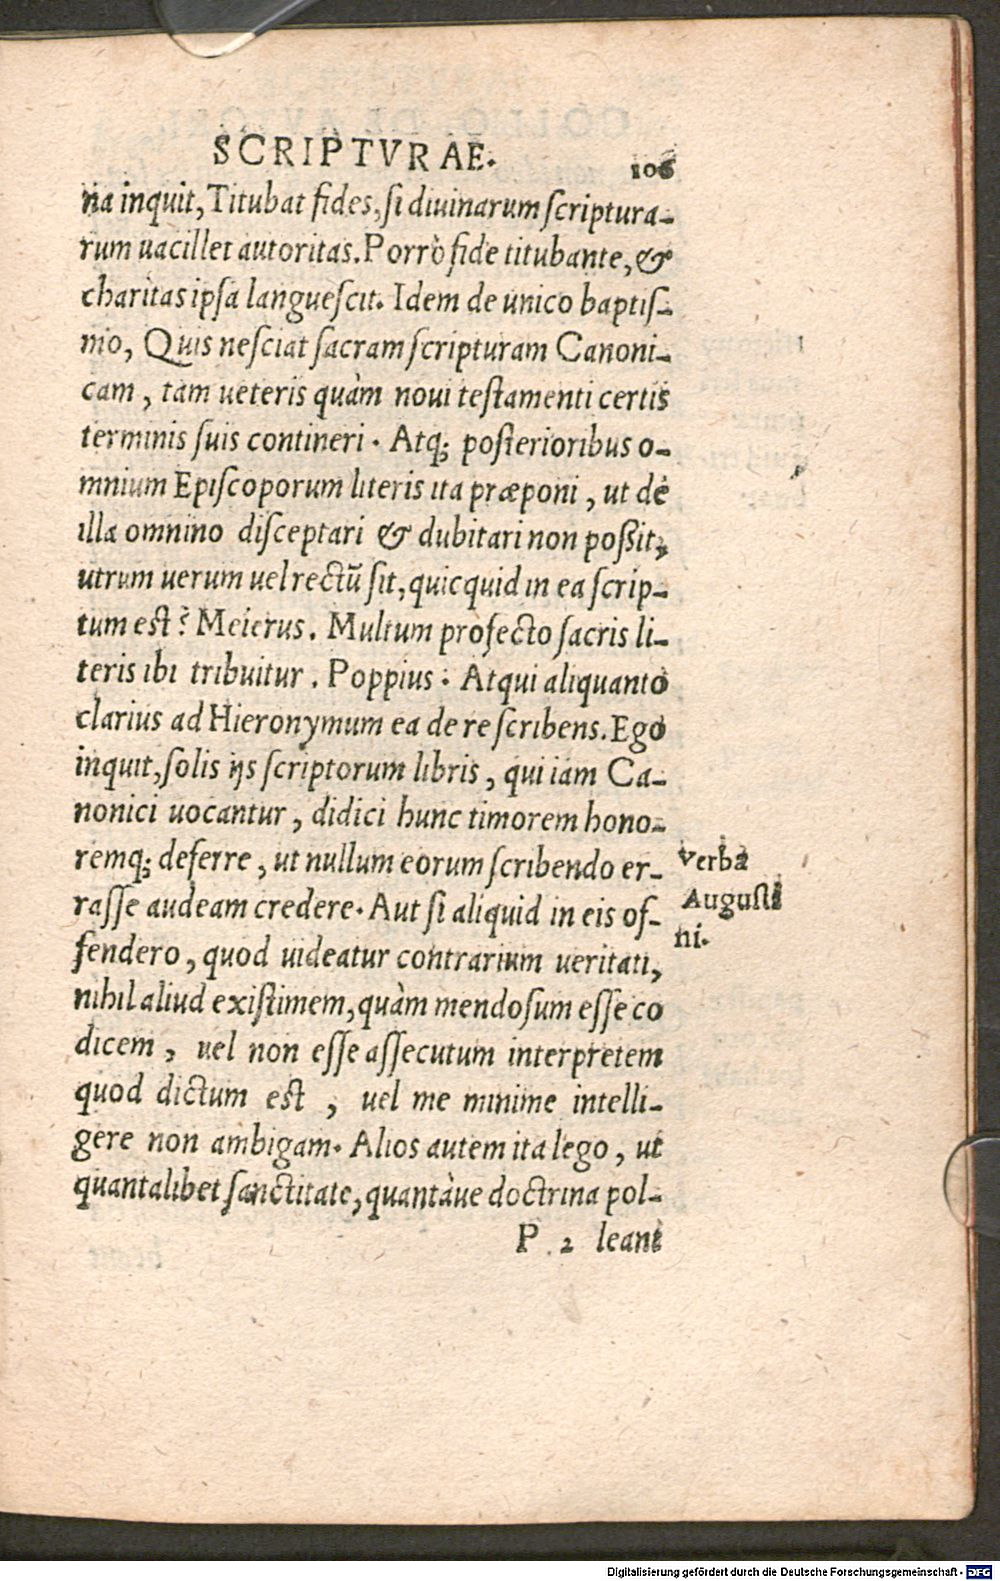 SCRIPTVRAE.
106
na inquit, Titubat fides, si diuinarum scriptura-
rum uacillet autoritas. Porrò fide titubante, &
charitas ipsa languescit. Idem de unico baptis-
mo, Quis nesciat sacram scripturam Canoni-
cam, tam ueteris quàm noui testamenti certis
terminis suis contineri. Atq; posterioribus o-
mnium Episcoporum literis ita præponi, ut de
illa omnino disceptari & dubitari non possit,
utrum uerum uel rectū sit, quicquid in ea scrip-
tum est? Meierus. Multum profecto sacris li-
teris ibi tribuitur. Poppius: Atqui aliquanto
clarius ad Hieronymum ea de re scribens. Ego
inquit, solis ijs scriptorum libris, qui iam Ca-
nonici uocantur, didici hunc timorem hono-
remq; deferre, ut nullum eorum scribendo er-
rasse audeam credere. Aut si aliquid in eis of-
fendero, quod uideatur contrarium ueritati,
nihil aliud existimem, quàm mendosum esse co
dicem, uel non esse assecutum interpretem
quod dictum est, uel me minime intelli-
gere non ambigam. Alios autem ita lego, ut
quantalibet sanctitate, quantàue doctrina pol-
P 2 leant
Verba
Augusti
ni.
Digitalisierung gefördert durch die Deutsche Forschungsgemeinschaft - DFG